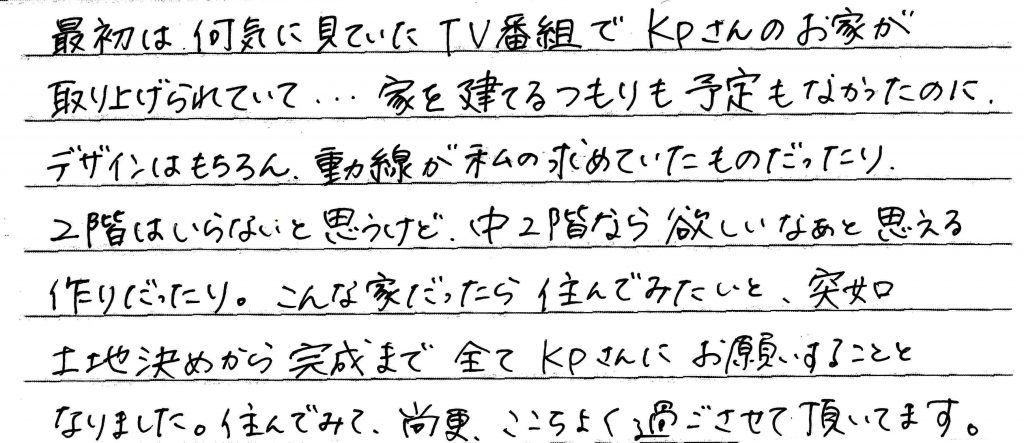 最初は何気に見ていたTV番組でKPさんのお家が
取り上げられていて・・・家を建てるつもりも予定もなかったのに、
デザインはもちろん、動線が私の求めていたものだったり、
2階はいらないと思うけど、中2階なら欲しいなぁと思える
作りだったり。こんな家だったら住んでみたいと、突如
土地決めから完成まで全てKPさんにお願いすることと
なりました。住んでみて、尚更、ここちよく過ごさせて頂いてます。